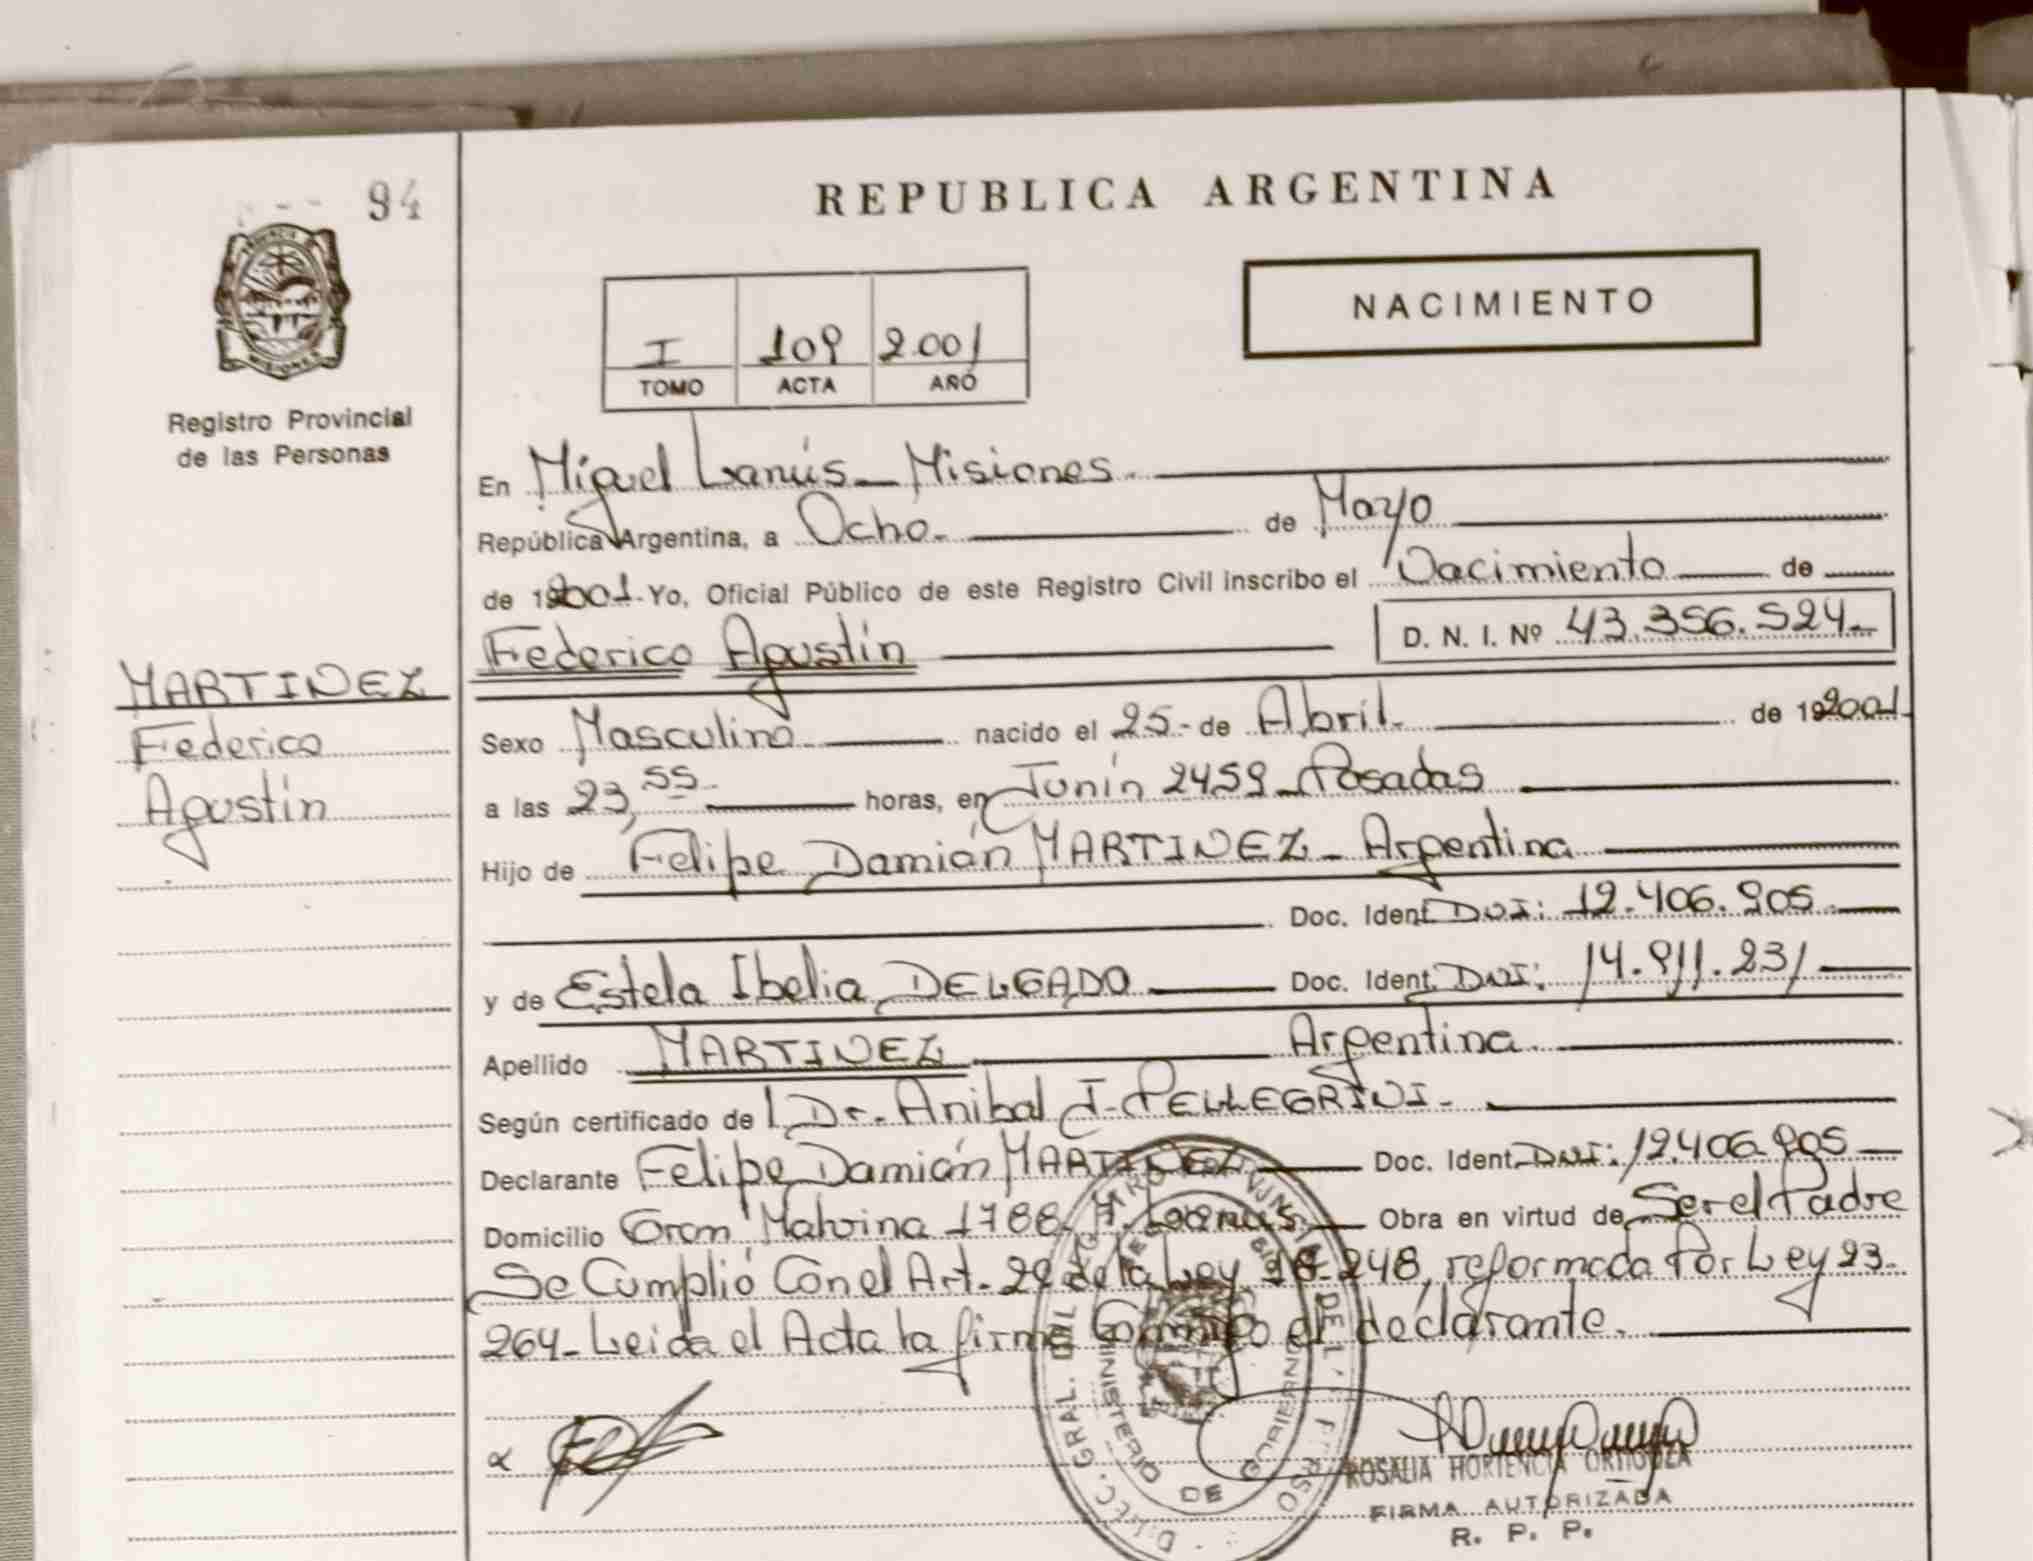 94
REPUBLICA ARGENTINA
NACIMIENTO
I 109 2.001
TOMO ACTA AÑO
Registro Provincial
de las Personas
En Miguel Lanús - Misiones.
República Argentina, a Ocho. de Mayo
de 192001. Yo, Oficial Público de este Registro Civil inscribo el Nacimiento de
Federico Agustín D. N. I. Nº 43.356.524-
MARTINEZ
Federico
Agustín
Sexo Masculino nacido el 25- de Abril. de 192001-
a las 23,55 horas, en Junín 2459 - Posadas
Hijo de Felipe Damián MARTINEZ - Argentina
Doc. Ident. DNI: 12.406.905
y de Estela Ibelia DELGADO Doc. Ident. DNI: 14.911.231
Apellido MARTINEZ Argentina
Según certificado del Dr. Anibal J. PELLEGRINI.
Declarante Felipe Damián MARTINEZ Doc. Ident. DNI: 12.406.905
Domicilio Gran Malvina 1788- M. Lanús. Obra en virtud de Ser el Padre
Se Cumplió Con el Art. 29 de la Ley 18.248, reformada Por Ley 23.
264- Leida el Acta la firma Conmigo el declarante.
ROSALIA HORTENCIA ORTIGOZA
FIRMA AUTORIZADA
R. P. P.
MINISTERIO DE GOBIERNO